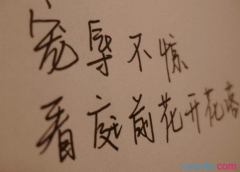 宠辱不惊
看庭前花开花落